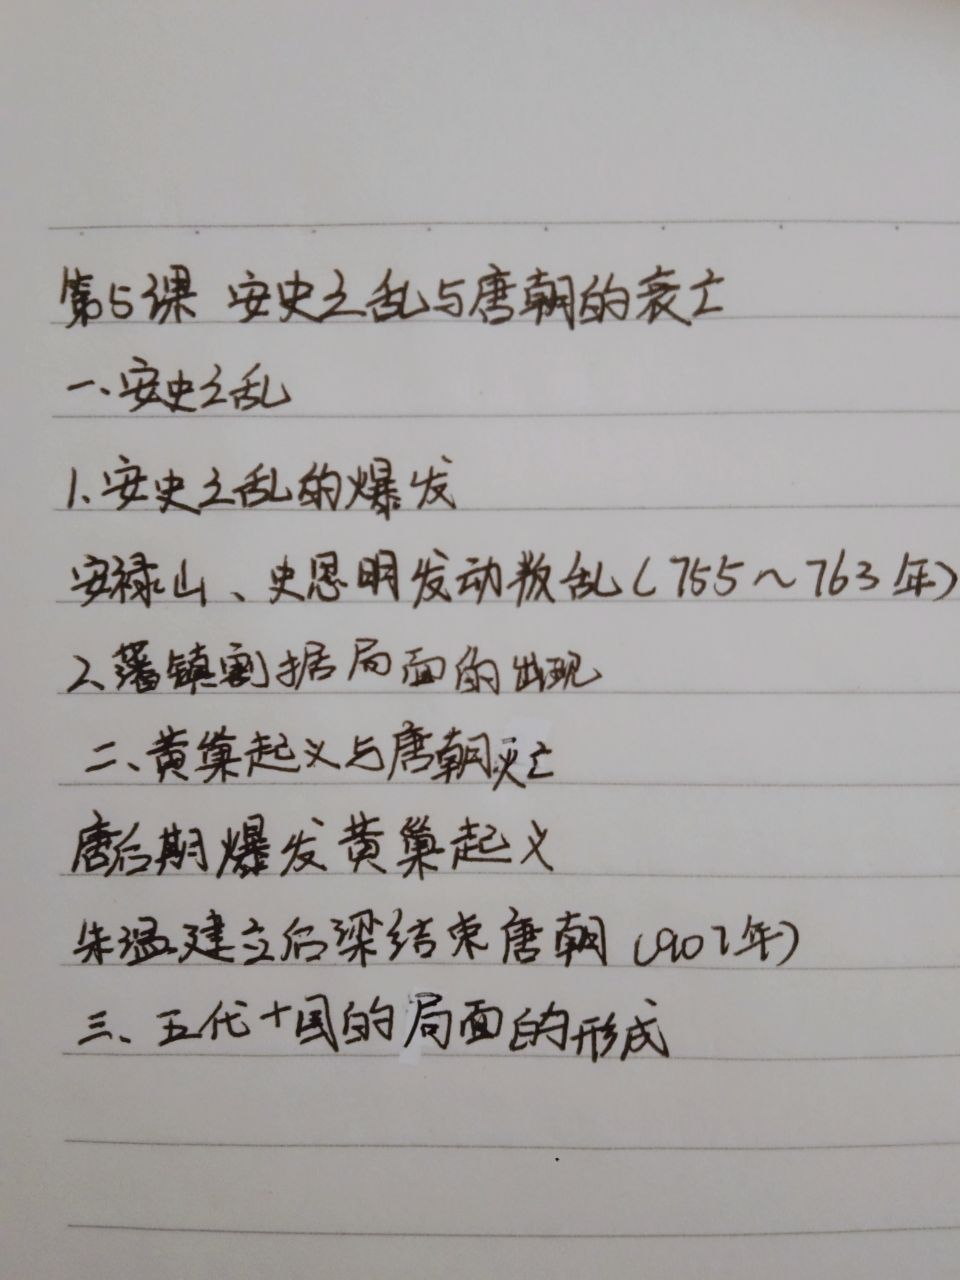 第5课 安史之乱与唐朝的衰亡
一、安史之乱
1、安史之乱的爆发
安禄山、史思明发动叛乱(755～763年)
2、藩镇割据局面的出现
二、黄巢起义与唐朝灭亡
唐后期爆发黄巢起义
朱温建立后梁结束唐朝(907年)
三、五代十国的局面的形成